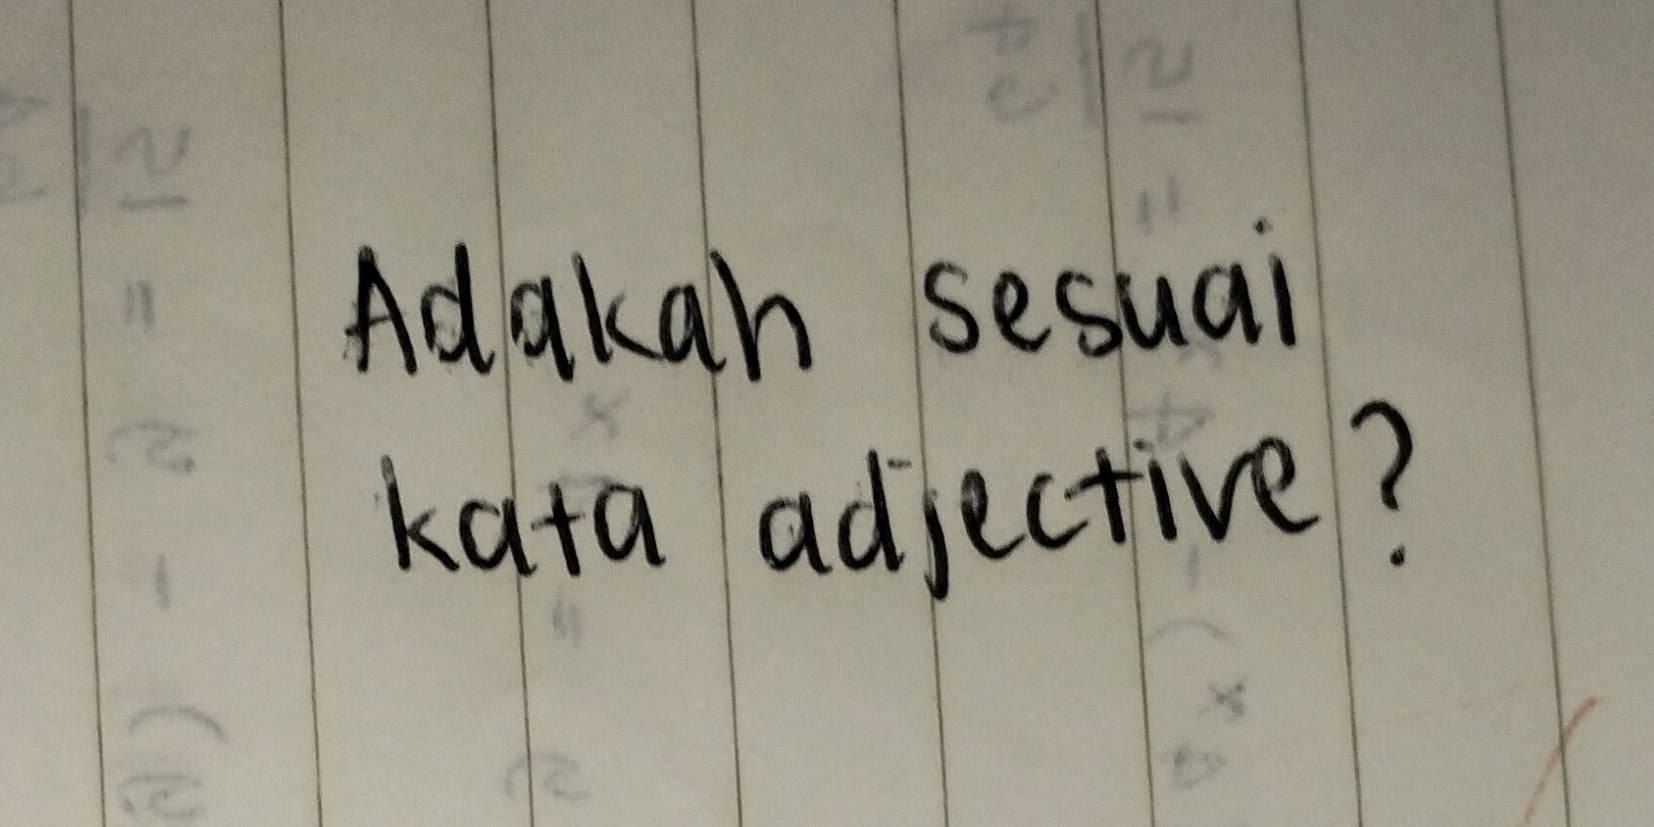 Adakah sesuai
kata adjective?